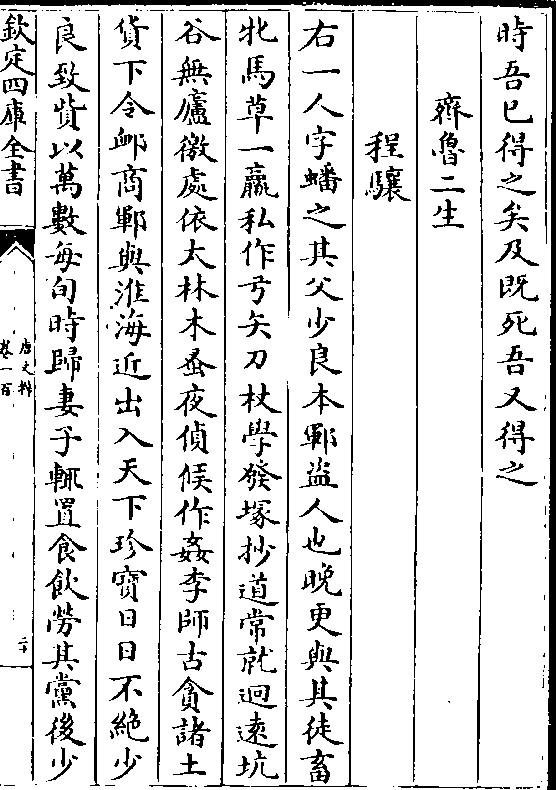 時吾已得之矣及既死吾又得之
齊魯二生
程驤
右一人字蟠之其父少良本鄆盜人也晚更與其徒畜
牝馬草一驘私作弓矢刀杖學發塚抄道常就迥遠坑
谷無廬徼處依大林木蚤夜偵候作姦李師古貪諸土
貨下令䘏商鄆與淮海近出入天下珍寶日日不絶少
良致貲以萬數每旬時歸妻子輒置食飲勞其黨後少
欽定四庫全書
唐文粹
卷一百
二十